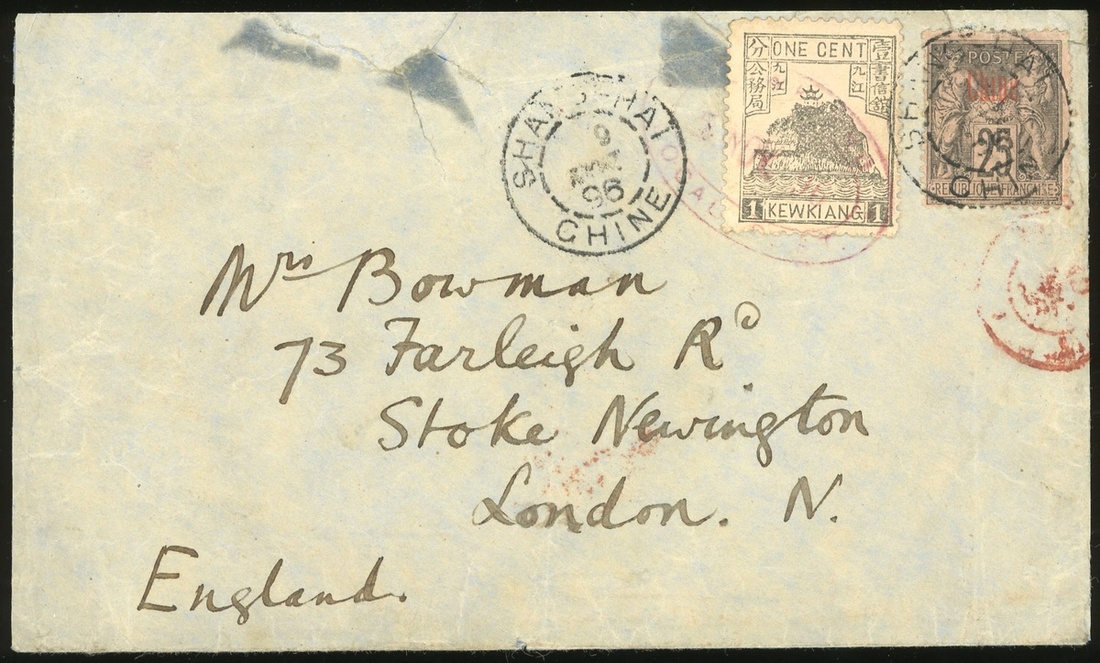 SHANG-HAI
9
96
CHINE
ONE CENT
分
公務局
九江
九江
壹
書信館
1 KEWKIANG 1
LOCAL POST
POSTE
Chine
25
REPUBLIQUE FRANÇAISE
SHANG-HAI
CHINE
Mrs Bowman
73 Farleigh Rd
Stoke Newington
London. N.
England.